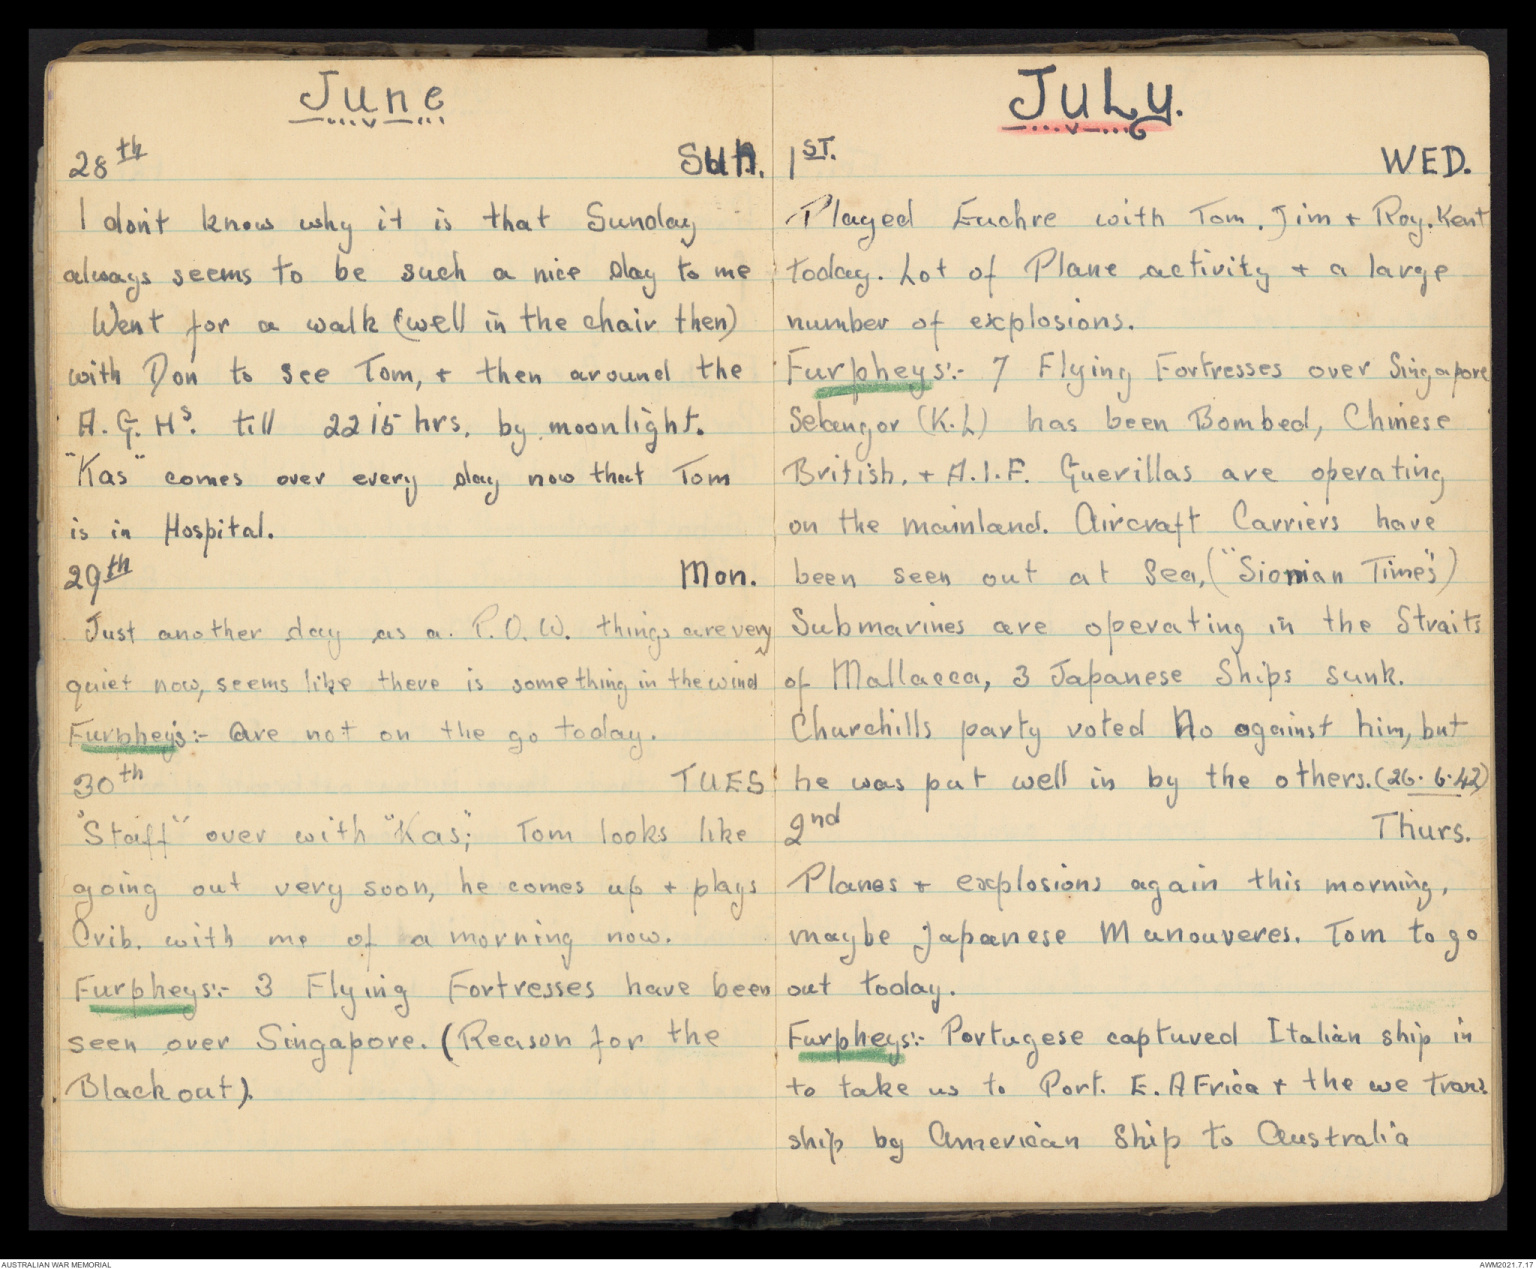 June
28th Sun.
I don't know why it is that Sunday
always seems to be such a nice day to me
Went for a walk (well in the chair then)
with Don to see Tom, + then around the
A.G.Hs. till 2215 hrs. by moonlight.
"Kas" comes over every day now that Tom
is in Hospital.
29th Mon.
Just another day as a P.O.W. things are very
quiet now, seems like there is something in the wind
Furpheys:- are not on the go today.
30th TUES
"Staff" over with "Kas"; Tom looks like
going out very soon, he comes up + plays
Crib. with me of a morning now.
Furpheys:- 3 Flying Fortresses have been
seen over Singapore. (Reason for the
Blackout).
JULY.
1ST. WED.
Played Euchre with Tom. Jim + Roy. Kent
today. Lot of Plane activity + a large
number of explosions.
Furpheys:- 7 Flying Fortresses over Singapore
Selangor (K.L) has been Bombed, Chinese
British, + A.I.F. Guerillas are operating
on the mainland. Aircraft Carriers have
been seen out at Sea, ("Sionian Times")
Submarines are operating in the Straits
of Mallacca, 3 Japanese Ships sunk.
Churchills party voted No against him, but
he was put well in by the others. (26.6.42)
2nd Thurs.
Planes + explosions again this morning,
maybe Japanese Manouveres. Tom to go
out today.
Furpheys:- Portugese captured Italian ship in
to take us to Port. E. AFrica + the we trans
ship by American Ship to Australia
AUSTRALIAN WAR MEMORIAL
AWM2021.7.17